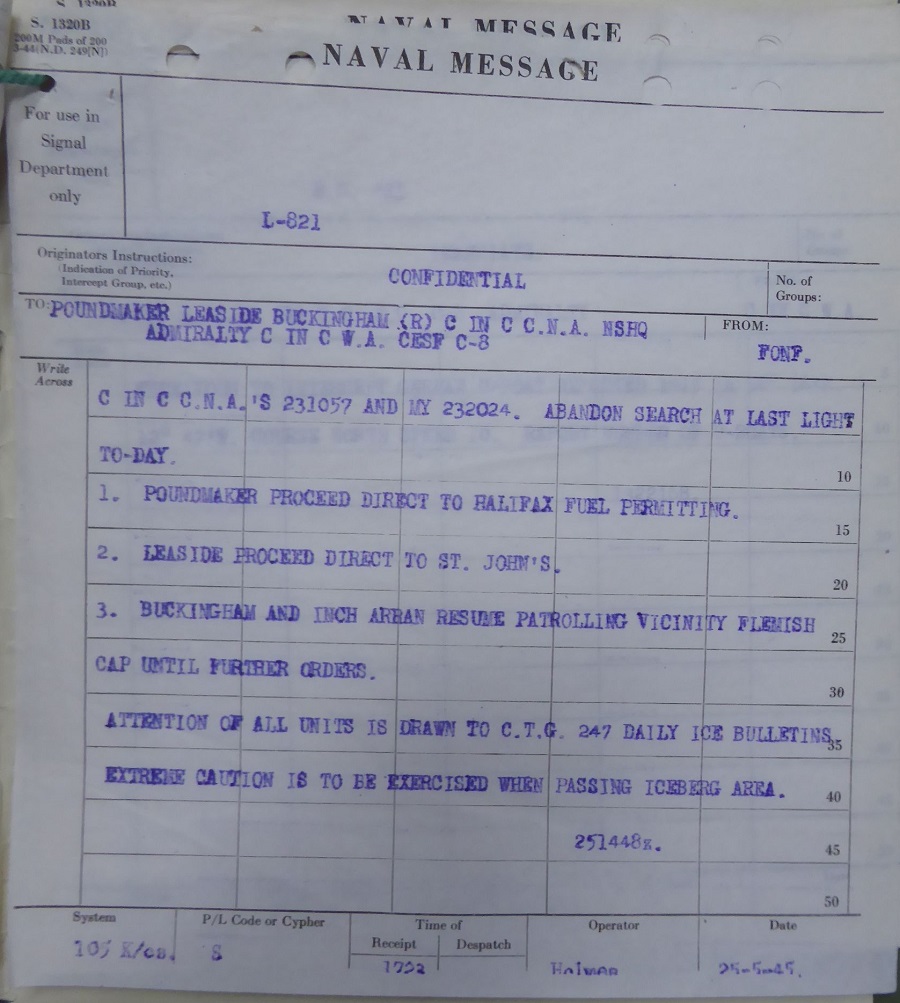 S. 1320B
NAVAL MESSAGE
S. 1320B
200M Pads of 200
3-44(N.D. 249(N))
NAVAL MESSAGE
For use in
Signal
Department
only
L-821
Originators Instructions:
(Indication of Priority,
Intercept Group, etc.)
CONFIDENTIAL
No. of
Groups:
TO: POUNDMAKER LEASIDE BUCKINGHAM (R) C IN C C.N.A. NSHQ
ADMIRALTY C IN C W.A. CESF C-8
FROM:
FONF.
Write
Across
C IN C C.N.A.'S 231057 AND MY 232024. ABANDON SEARCH AT LAST LIGHT
TO-DAY.
10
1. POUNDMAKER PROCEED DIRECT TO HALIFAX FUEL PERMITTING.
15
2. LEASIDE PROCEED DIRECT TO ST. JOHN'S.
20
3. BUCKINGHAM AND INCH ARRAN RESUME PATROLLING VICINITY FLEMISH
25
CAP UNTIL FURTHER ORDERS.
30
ATTENTION OF ALL UNITS IS DRAWN TO C.T.G. 247 DAILY ICE BULLETINS
35
EXTREME CAUTION IS TO BE EXERCISED WHEN PASSING ICEBERG AREA.
40
251448z.
45
50
System
P/L Code or Cypher
Time of
Receipt
Despatch
Operator
Date
105 K/cs.
S
1722
Holman
25-5-45.